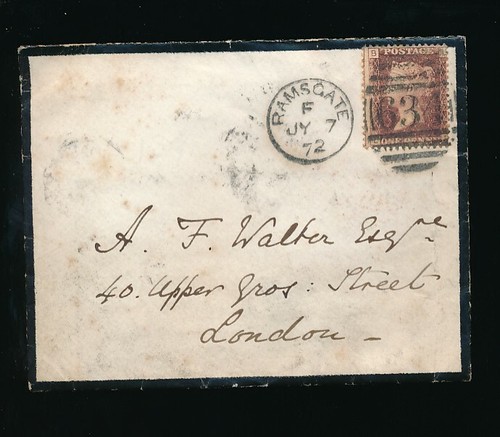 POSTAGE
RAMSGATE
F
JY 7
72
63
ONE PENNY
A. F. Walter Esqre
40. Upper Gros: Street
London -